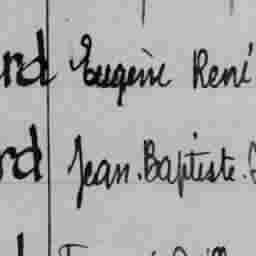 rd Eugène René
rd Jean.Baptiste.